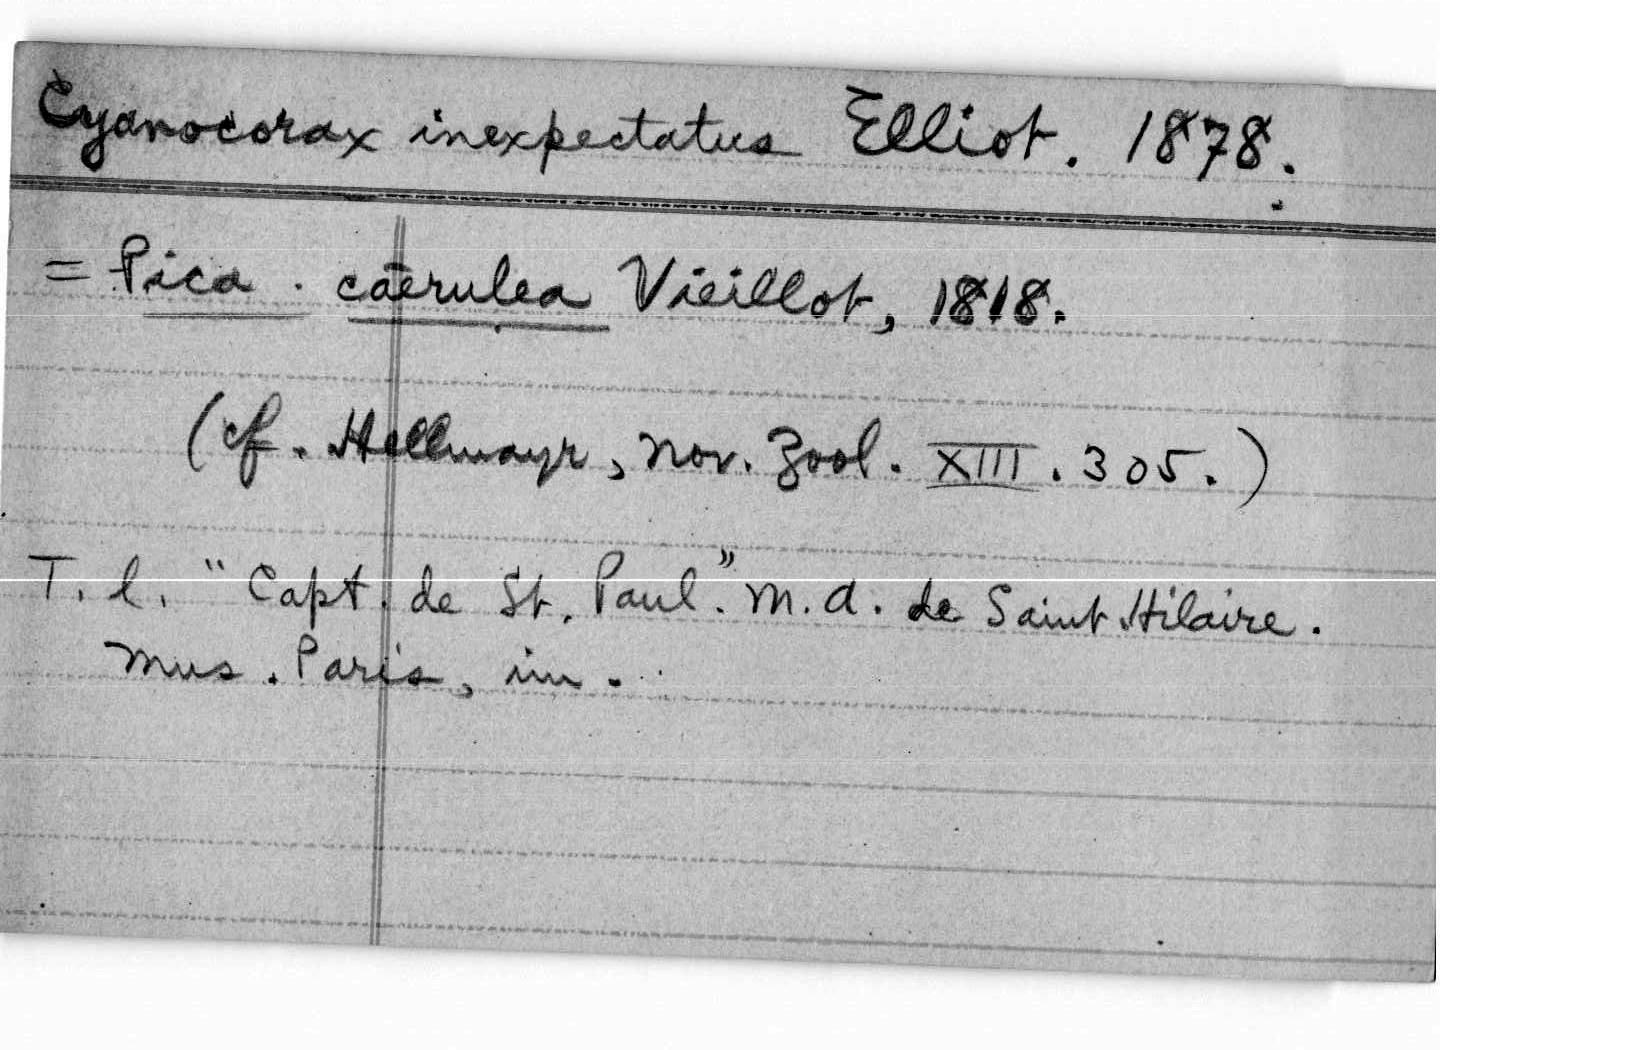 Cyanocorax inexpectatus Elliot. 1878.
= Pica . caerulea Vieillot, 1818.
(cf. Hellmayr, Nov. Zool. XIII. 305.)
T. l. "Capt. de St. Paul". M. d. de Saint Hilaire.
Mus. Paris, im.